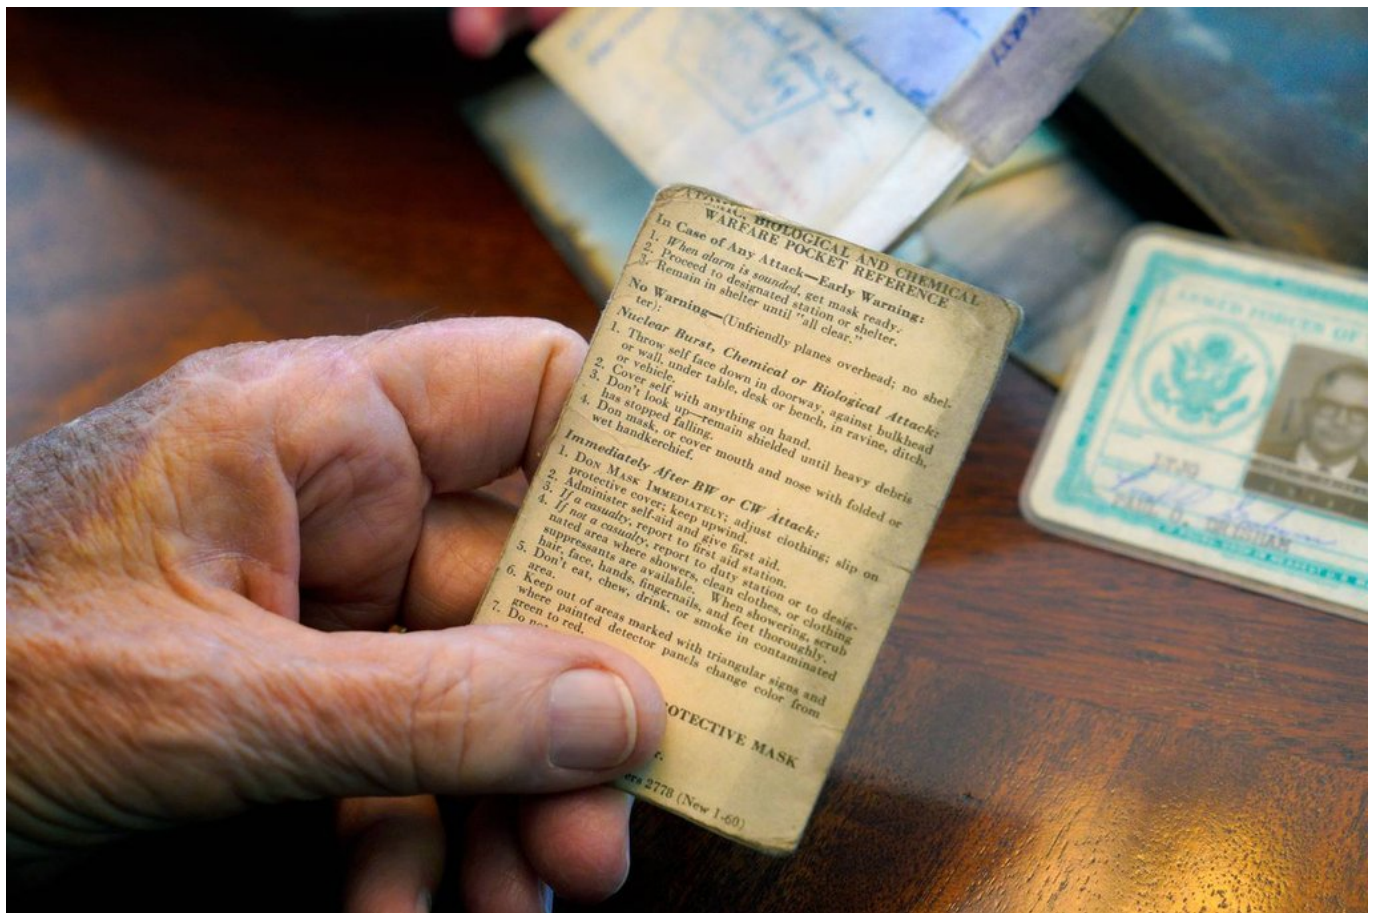 ATOMIC, BIOLOGICAL AND CHEMICAL
WARFARE POCKET REFERENCE
In Case of Any Attack—Early Warning:
1. When alarm is sounded, get mask ready.
2. Proceed to designated station or shelter.
3. Remain in shelter until "all clear."
No Warning—(Unfriendly planes overhead; no shel-
ter):
Nuclear Burst, Chemical or Biological Attack:
1. Throw self face down in doorway, against bulkhead
or wall, under table, desk or bench, in ravine, ditch,
or vehicle.
2. Cover self with anything on hand.
3. Don't look up—remain shielded until heavy debris
has stopped falling.
4. Don mask, or cover mouth and nose with folded or
wet handkerchief.
Immediately After BW or CW Attack:
1. DON MASK IMMEDIATELY; adjust clothing; slip on
protective cover; keep upwind.
2. Administer self-aid and give first aid.
3. If a casualty, report to first aid station.
4. If not a casualty, report to duty station or to desig-
nated area where showers, clean clothes, or clothing
suppressants are available. When showering, scrub
hair, face, hands, fingernails, and feet thoroughly.
5. Don't eat, chew, drink, or smoke in contaminated
area.
6. Keep out of areas marked with triangular signs and
where painted detector panels change color from
green to red.
7. Do
OTECTIVE MASK
r.
ers 2778 (New 1-60)
ARMED FORCES OF
LTJG
PAUL